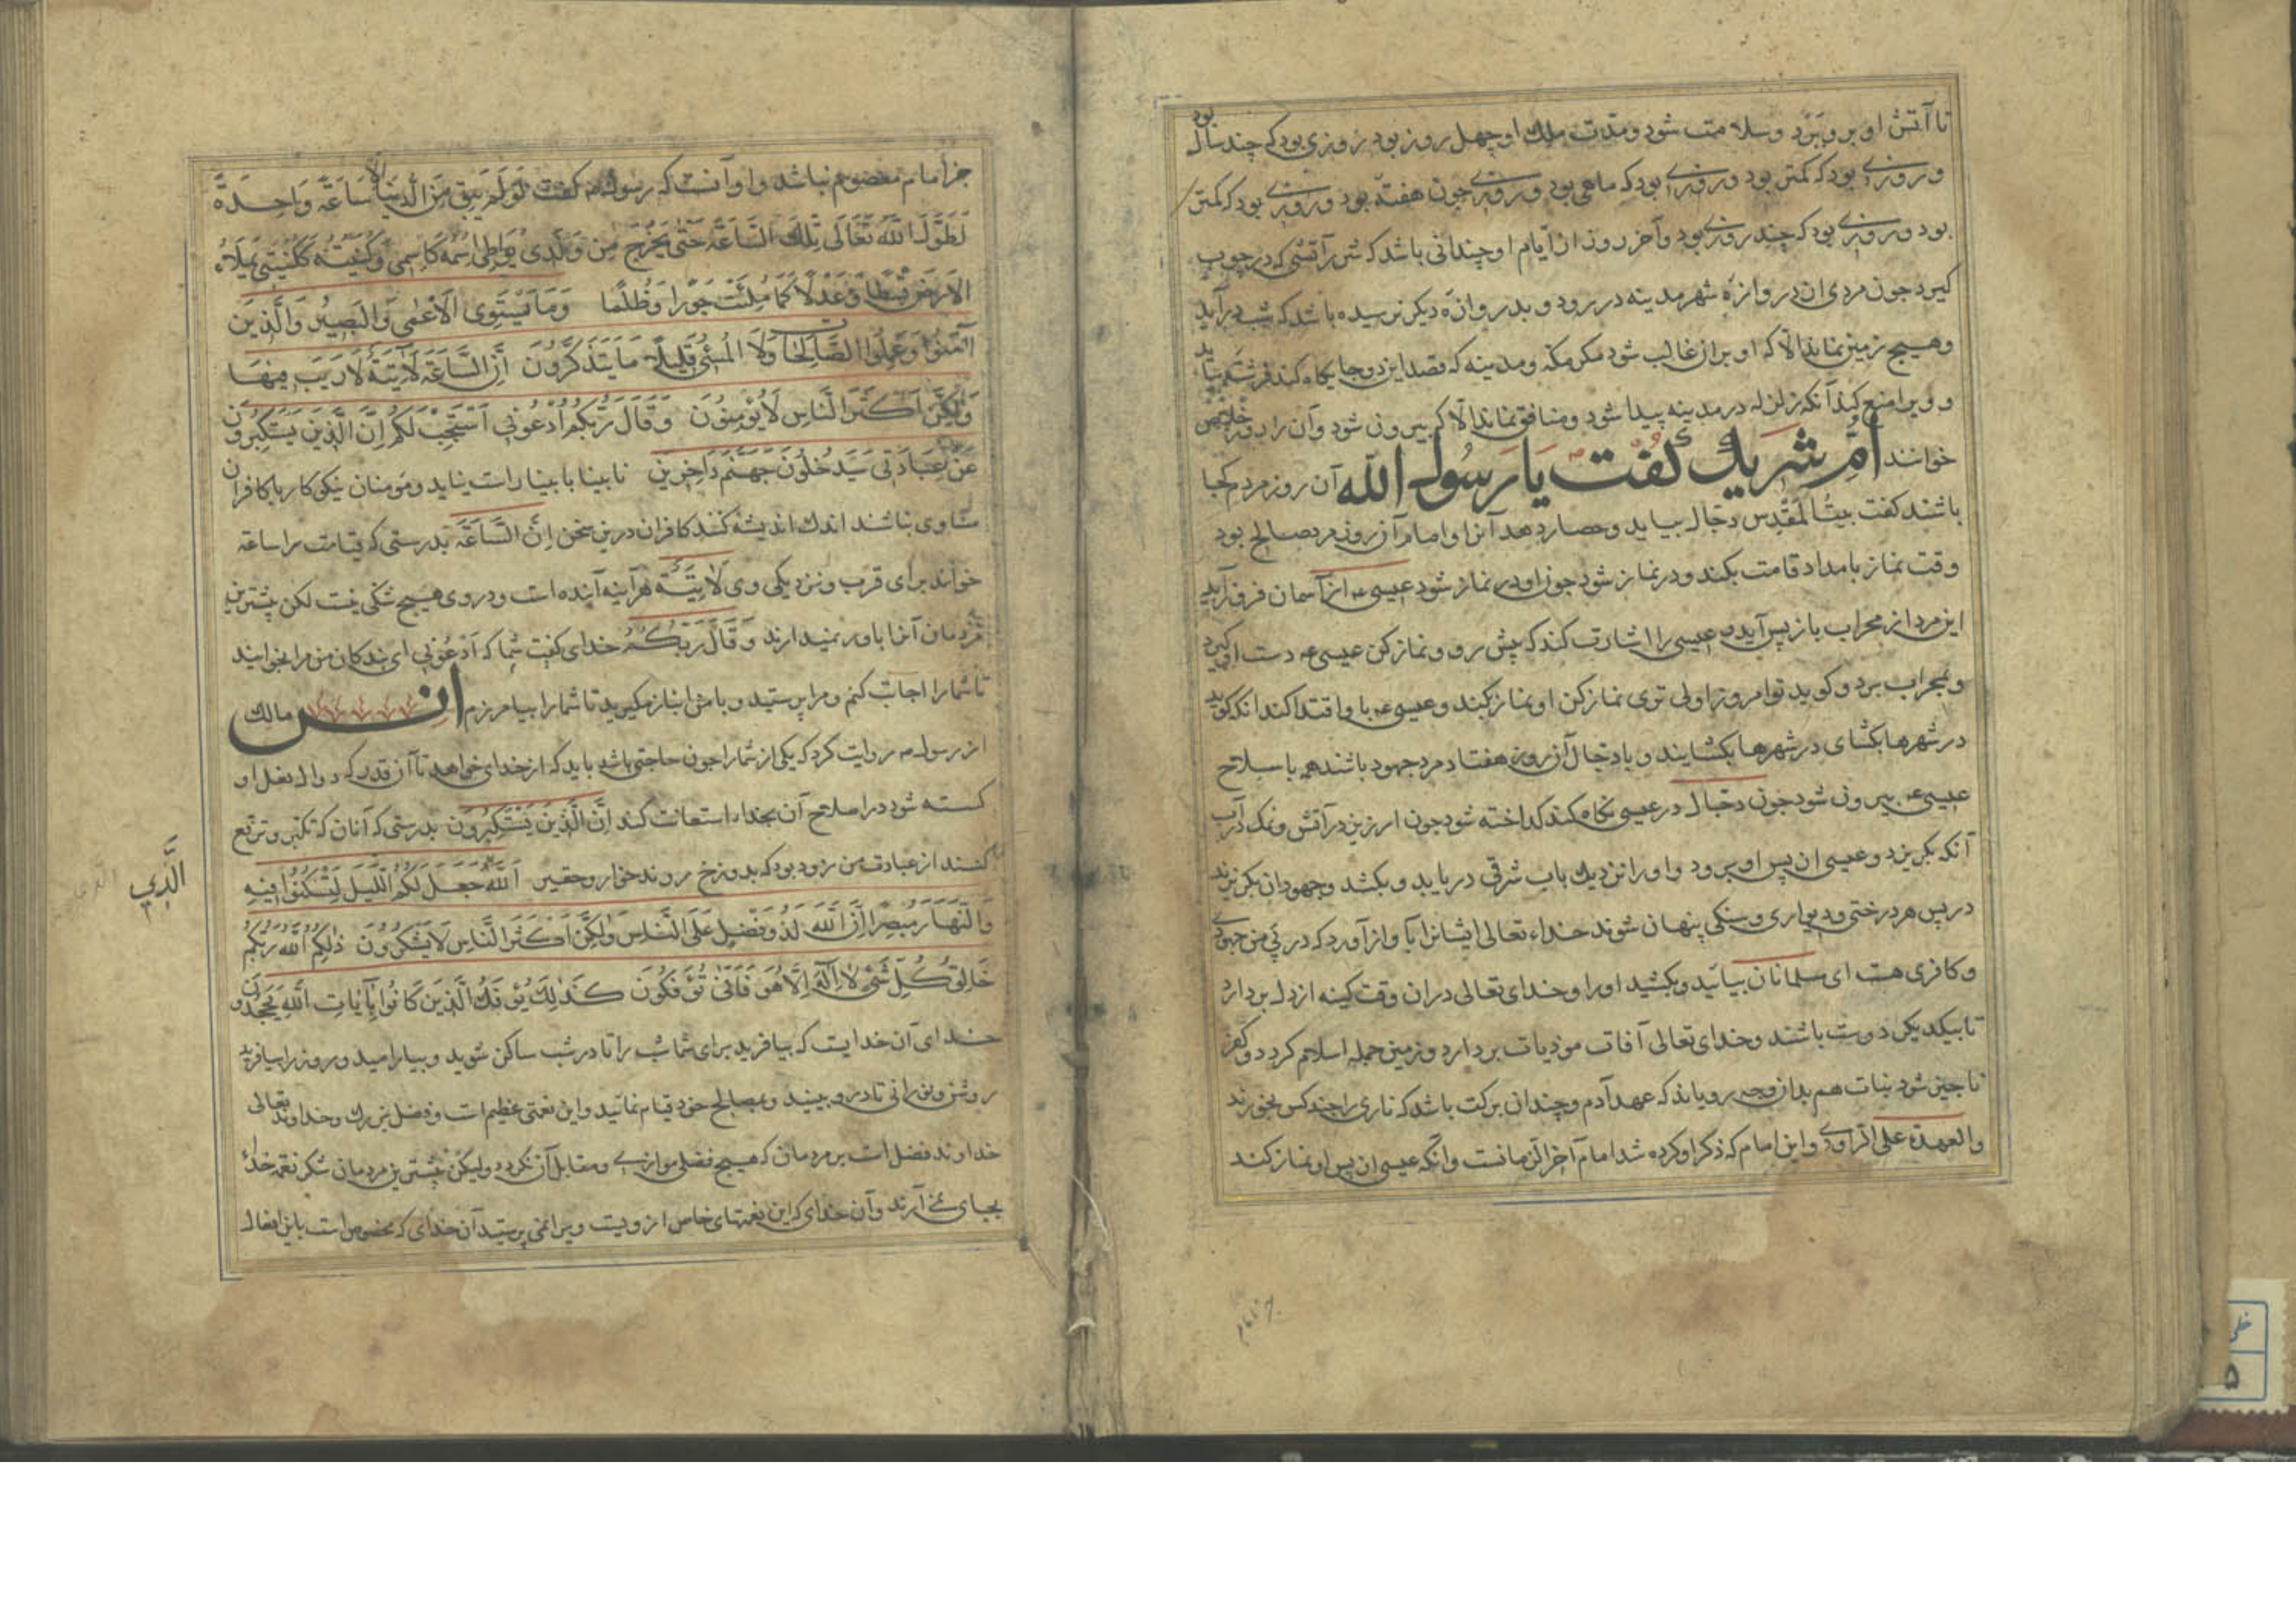 تا آتش او بر وی برد و سلامت شود و مدت ملک او چهل روز بود روزی بود که چند سال بود
و روزی بود که کمتر بود و روزی بود که ماهی بود و روزی چون هفته بود و روزی بود که کمتر
بود و روزی بود که چند روزی بود و آخر روز از ایام او چندانی باشد که شرر آتشی که در چوب
کیرد چون مردی از دروازه شهر مدینه در رود و بدروازه دیکر نرسیده باشد که شب درآید
و هیچ زمین نماند الا که او بران غالب شود مکر مکه و مدینه که قصد این دو جایکاه کند فرشته بیاید
و ویرا منع کند آنکه زلزله در مدینه پیدا شود و منافق نماند الا که بیرون شود و آن را روز خلاص
خوانند ام شریک کفت یا رسول الله آن روز مردم کجا
باشند کفت ببیت المقدس دجال بیاید و حصار دهد آنرا و امام آن روز مرد صالح بود
وقت نماز بامداد قامت بکند و در نماز شود چون او در نماز شود عیسی ع از آسمان فروآید
این مرد از محراب باز پس آید و عیسی را اشارت کند که پیش رو و نماز کن عیسی ع دست او کیرد
و بمحراب برد و کوید تو امروز اولی توی نماز کن او نماز بکند و عیسی ع باو اقتدا کند آنکه کوید
در شهرها بکشای در شهرها بکشایند و با دجال آن روز هفتاد مرد جهود باشند همه با سلاح
عیسی ع بیرون شود چون دجال در عیسی نکاه کند کداخته شود چون ارزیز در آتش و نمک در آب
آنکه بکریزد و عیسی از پس او برود و او را نزدیک باب شرقی دریابد و بکشد و جهودان بکریزند
در پس هر درختی و دیواری و سنکی پنهان شوند خداء تعالی ایشانرا بآواز آورد که در پی من جهودی
و کافری هست ای مسلمانان بیائید و بکشید او را و خدای تعالی دران وقت کینه از دل بردارد
تا بیکدیکر دوست باشند و خدای تعالی آفات موذیات بردارد و زمین جمله اسلام کردد و کفر
ناچیز شود نبات هم بدان وجه رویاند که عهد آدم و چندان برکت باشد که ناری را چند کس بخورند
والعهدة علی الراوی و این امام که ذکر او کرده شد امام آخر الزمانست و آنکه عیسی از پس او نماز کند
جز امام معصوم نباشد و او آنست که رسول ص کفت لَوْ لَمْ يَبْقَ مِنَ الدُّنْيَا إلّا سَاعَةٌ وَاحِدَةٌ
لَطَوَّلَ اللّٰهُ تَعَالَى تِلْكَ السَّاعَةَ حَتَّى يَخْرُجَ مِنْ وَلَدِي يُوَاطِئُ اسْمُهُ كَاسْمِي وَكُنْيَتُهُ كَكُنْيَتِي يَمْلَأُ
الْأَرْضَ قِسْطًا وَعَدْلًا كَمَا مُلِئَتْ جَوْرًا وَظُلْمًا وَمَا يَسْتَوِي الْأَعْمَى وَالْبَصِيرُ وَالَّذِينَ
آمَنُوا وَعَمِلُوا الصَّالِحَاتِ وَلَا الْمُسِيءُ قَلِيلًا مَا يَتَذَكَّرُونَ إِنَّ السَّاعَةَ لَآتِيَةٌ لَا رَيْبَ فِيهَا
وَلَكِنَّ أَكْثَرَ النَّاسِ لَا يُؤْمِنُونَ وَقَالَ رَبُّكُمُ ادْعُونِي أَسْتَجِبْ لَكُمْ إِنَّ الَّذِينَ يَسْتَكْبِرُونَ
عَنْ عِبَادَتِي سَيَدْخُلُونَ جَهَنَّمَ دَاخِرِينَ نابینا با بینا راست نیاید و مؤمنان نیکوکار با کافران
مساوی نباشند اندک اندیشه کنند کافران درین سخن إِنَّ السَّاعَةَ بدرستی که قیامت را ساعة
خواند برای قرب و نزدیکی وی لَآتِيَةٌ هرآینه آینده است و در وی هیچ شکی نیست لکن بیشترین
مردمان آنرا باور نمیدارند وَقَالَ رَبُّكُمُ خدای کفت شما که ادْعُونِي ای بندکان من مرا بخوانید
تا شما را اجابت کنم و مرا پرستید و با من انباز مکیرید تا شما را بیامرزم انس مالک
از رسول ص روایت کرد که یکی از شما را چون حاجتی باشد باید که از خدای خواهد تا آن قدر که دوال نعل او
کسسته شود در اصلاح آن بخداء استعانت کند إِنَّ الَّذِينَ يَسْتَكْبِرُونَ بدرستی که آنان که تکبر و ترفع
کنند از عبادت من زود بود که بدوزخ روند خوار و حقیر اَللّٰهُ جَعَلَ لَكُمُ اللَّيْلَ لِتَسْكُنُوا فِيهِ
الَّذِي
وَالنَّهَارَ مُبْصِرًا إِنَّ اللّٰهَ لَذُو فَضْلٍ عَلَى النَّاسِ وَلَكِنَّ أَكْثَرَ النَّاسِ لَا يَشْكُرُونَ ذَلِكُمُ اللّٰهُ رَبُّكُمْ
خَالِقُ كُلِّ شَيْءٍ لَا إِلَهَ إِلَّا هُوَ فَأَنَّى تُؤْفَكُونَ كَذَلِكَ يُؤْفَكُ الَّذِينَ كَانُوا بِآيَاتِ اللّٰهِ يَجْحَدُونَ
خدای آن خدایست که بیافرید برای شما شب را تا در شب ساکن شوید و بیارامید و روز را بیافرید
روشن و نورانی تا درو ببینید و بمصالح خود قیام نمائید و این نعمتی عظیم است و فضل بزرک و خداوند تعالی
خداوند فضل است بر مردمان که هیچ فضلی موازی و مقابل آن نکردد ولیکن بیشترین مردمان شکر نعمة خدای
بجای نمی آرند و آن خدای که این نعمتهای خاص از ویست ویرا نمی پرستید آن خدای که مخصوص است باین افعال
خطی
۵